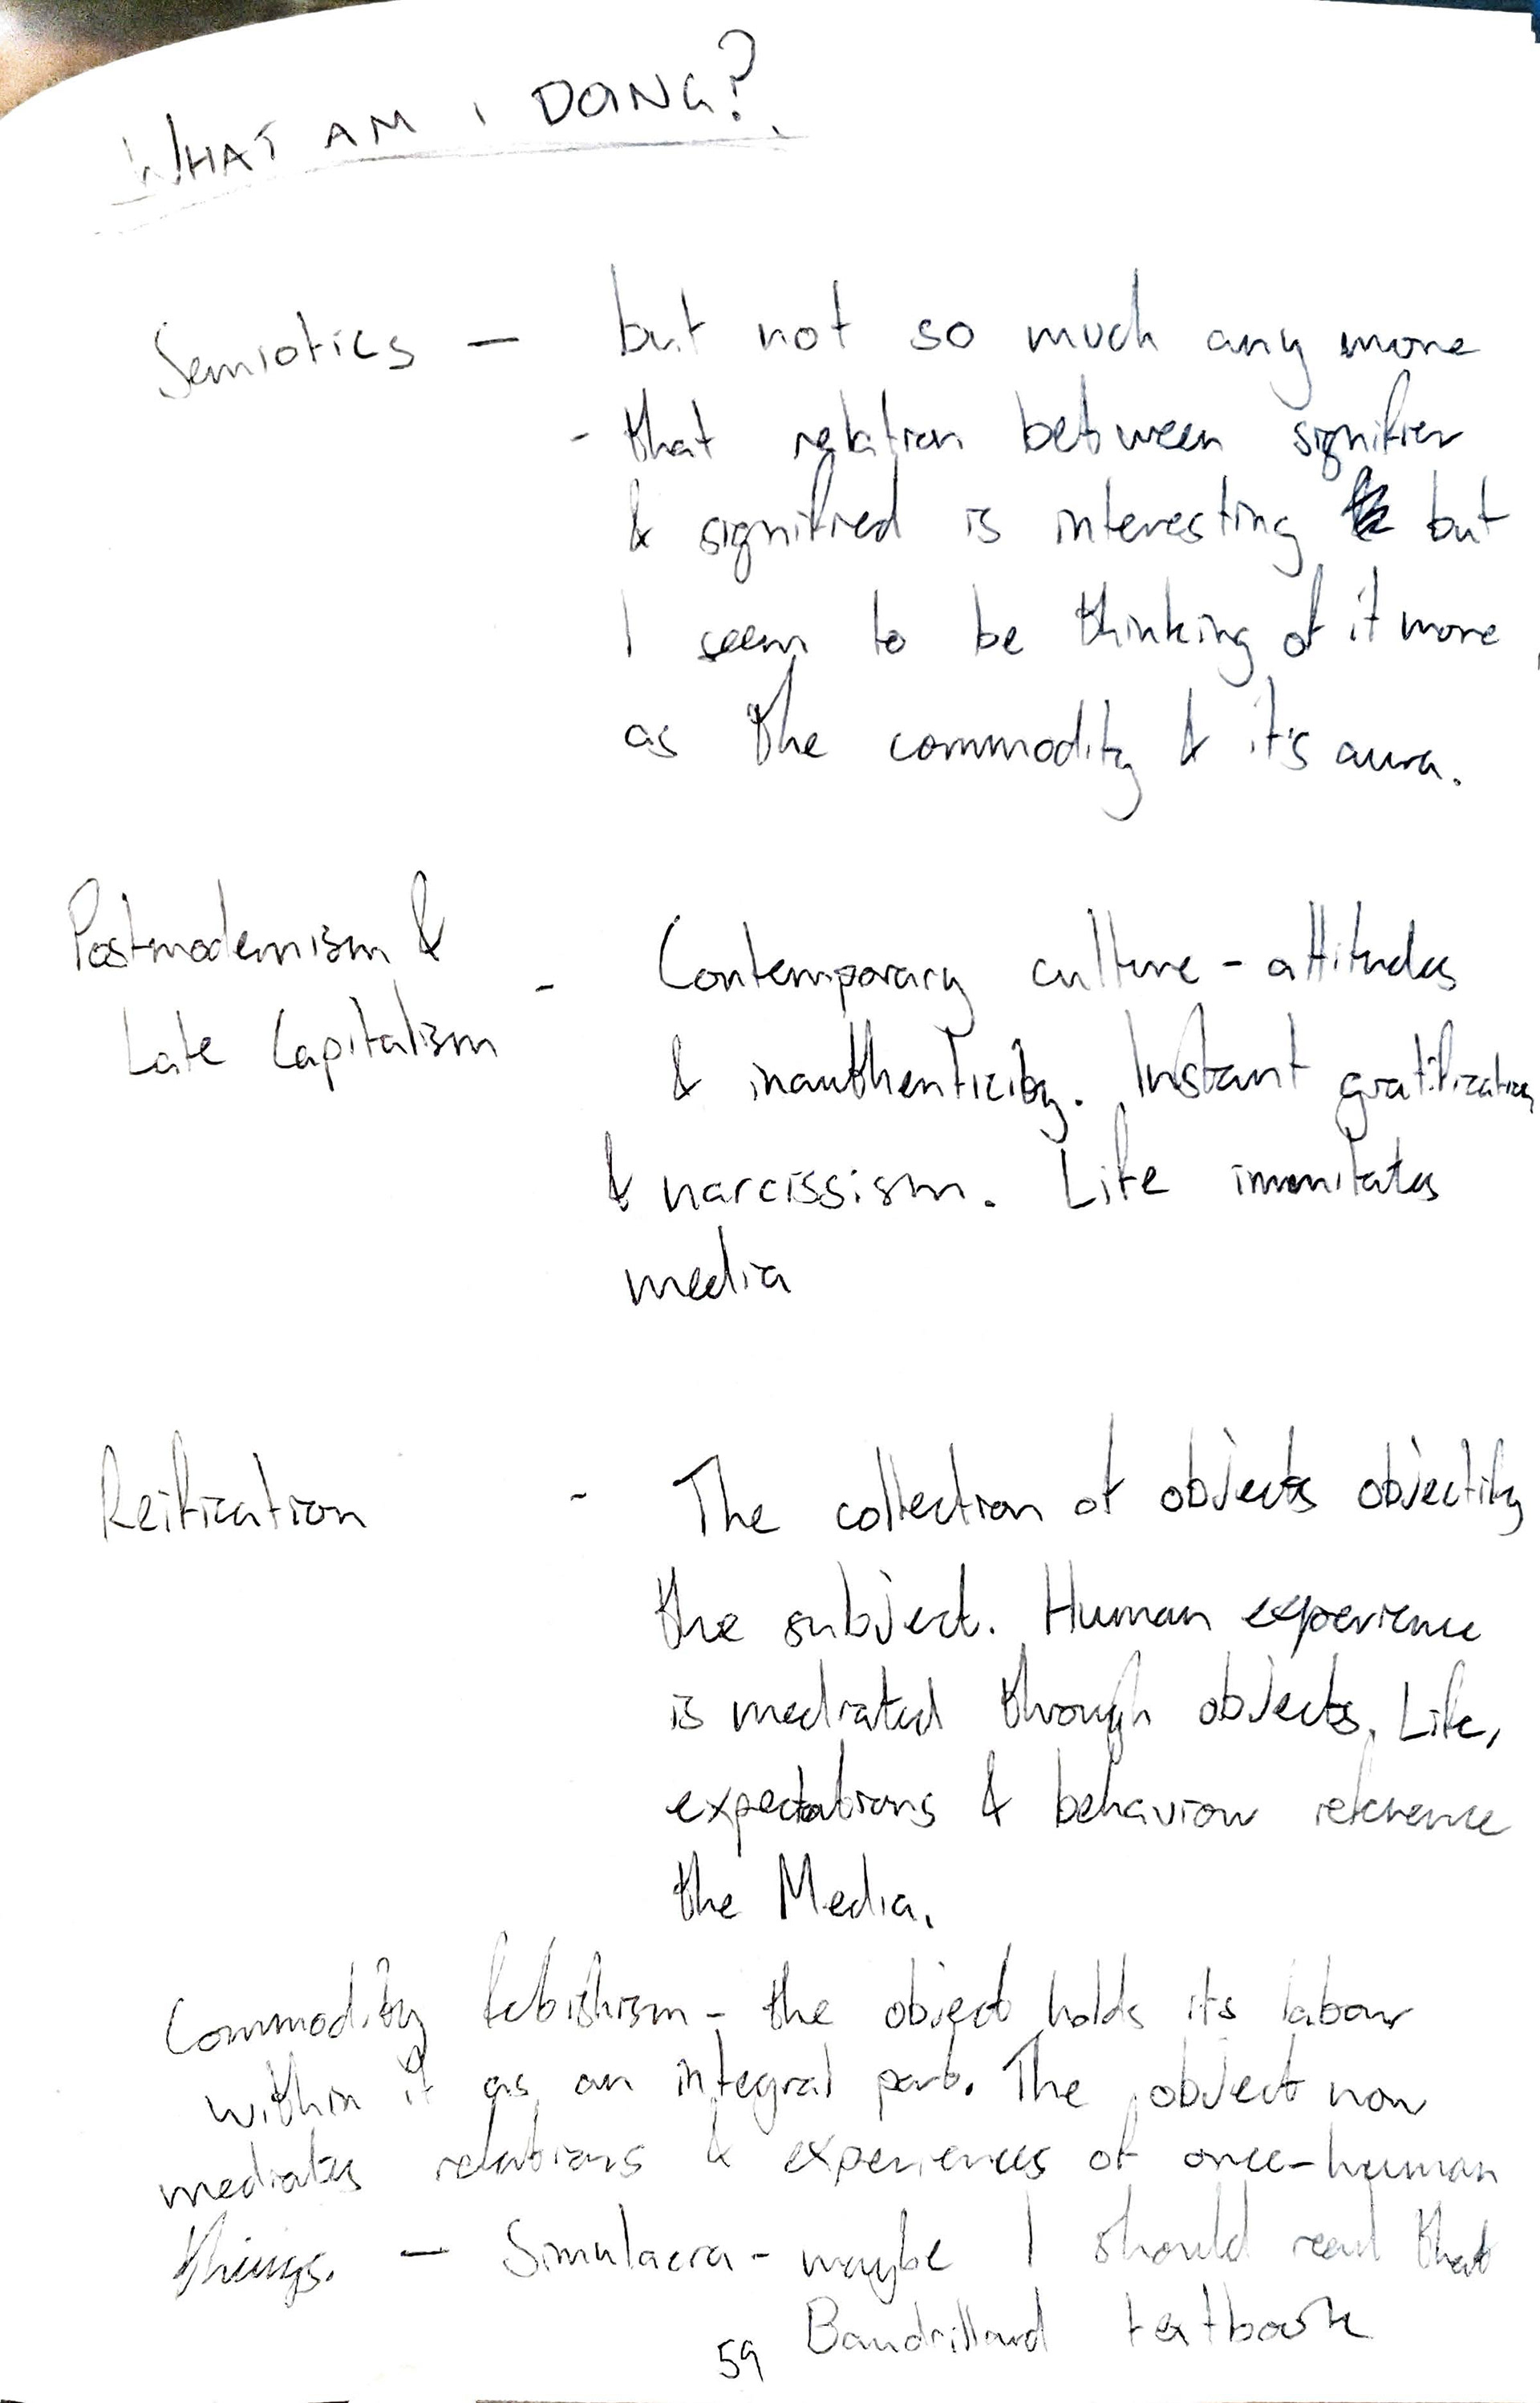 WHAT AM I DOING?
Semiotics — but not so much any more
- that relation between signifier
& signified is interesting but
I seem to be thinking of it more
as the commodity & it's aura.
Postmodernism &
Late Capitalism - Contemporary culture - attitudes
& inauthenticity. Instant gratification
& narcissism. Life immitates
media
Reification - The collection of objects objectify
the subject. Human experience
is mediated through objects. Life,
expectations & behaviour reference
the Media.
Commodity fetishism - the object holds its labour
within it as an integral part. The object now
mediates relations & experiences of once-human
things. — Simulacra - maybe I should read that
Baudrillard textbook
59